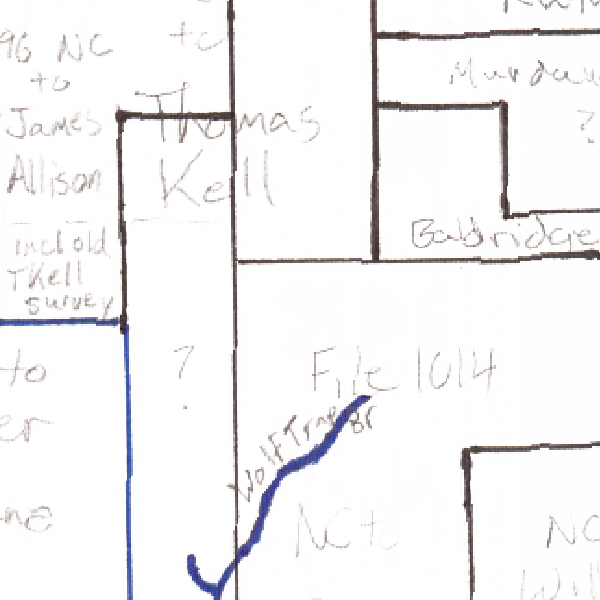 96 NC
to
James
Allison
incl old
TKell
survey
to
Thomas
Kell
?
to
er
ne
?
Baldridge
File 1014
Wolf Trap Br
NC to
NC
Will